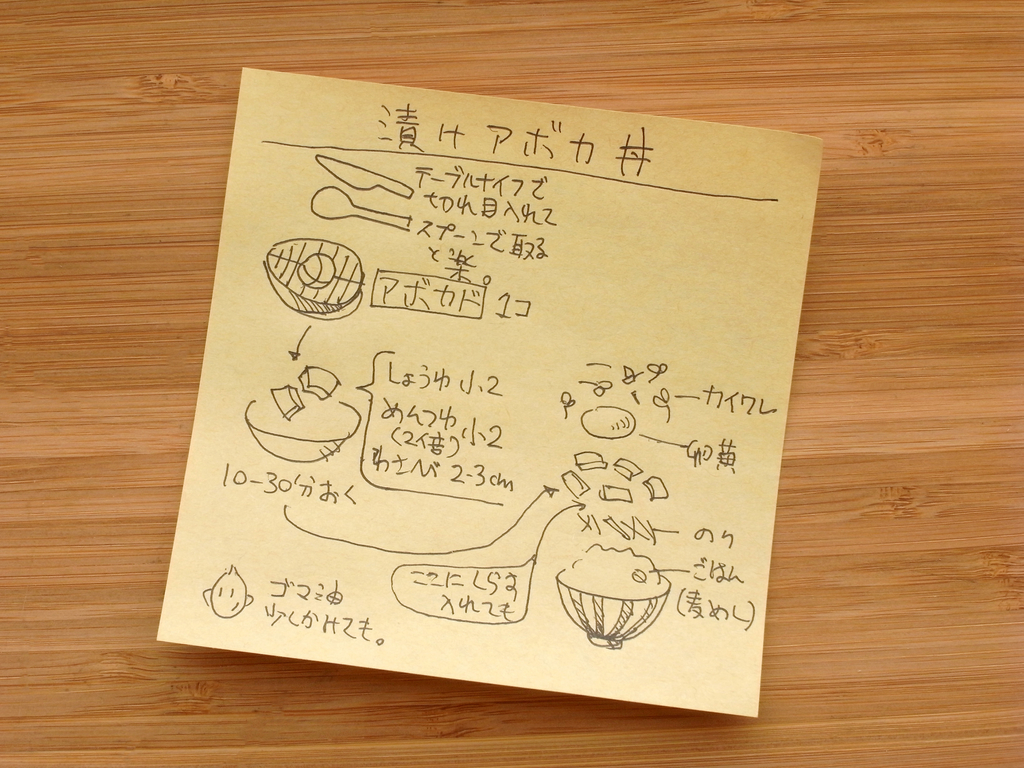 漬けアボカ丼
テーブルナイフで
切れ目入れて
スプーンで取る
と楽。
アボカド 1コ
しょうゆ 小2
めんつゆ 小2
(2倍)
わさび 2-3cm
10-30分おく
カイワレ
卵黄
のり
ごはん
(麦めし)
ここにしらす
入れても
ゴマ油
少しかけても。